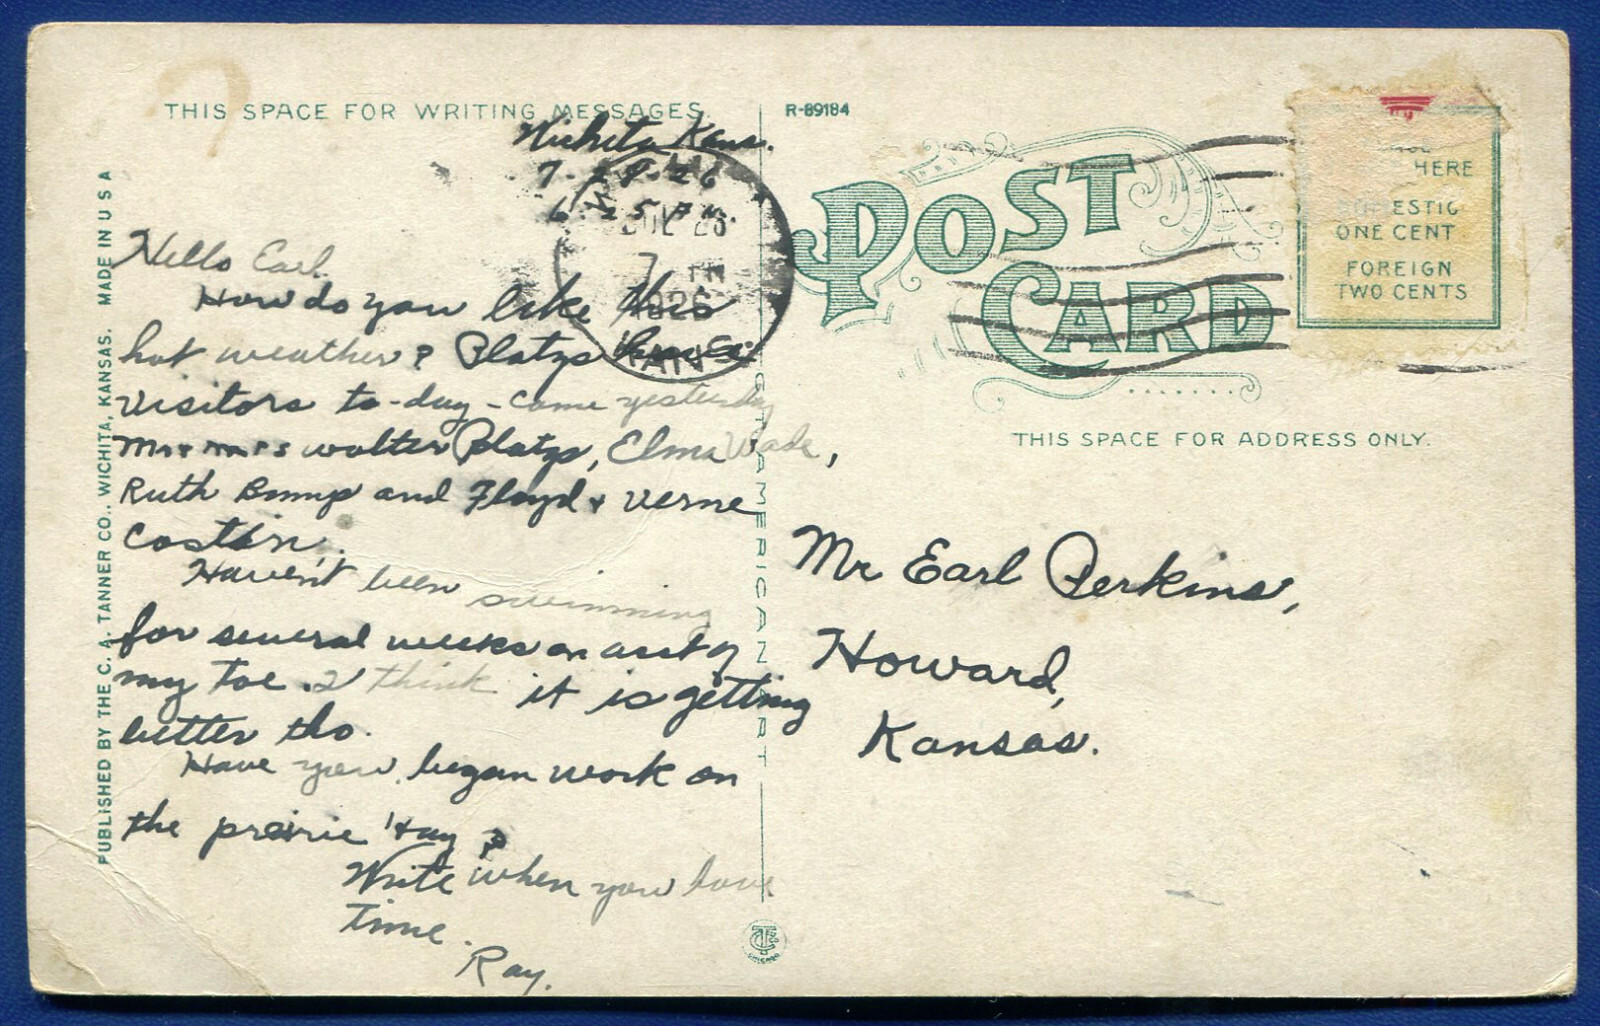 THIS SPACE FOR WRITING MESSAGES.
Wichita Kans.
6:25 P.M.
Hello Earl
How do you like this
hot weather? Platzs have
visitors to-day - came yesterday
Mr + Mrs Walter Platzs, Elma Wade,
Ruth Bump and Floyd + Verne
Costin.
Haven't been swimming
for several weeks on acct of
my toe. I think it is getting
better tho.
Have you began work on
the prairie Hay?
Write when you have
time.
Ray.
PUBLISHED BY THE C. A. TANNER CO., WICHITA, KANSAS. MADE IN U S A
AMERICAN ART
R-89184
POST
CARD
HERE
DOMESTIC
ONE CENT
FOREIGN
TWO CENTS
1926
KANS
THIS SPACE FOR ADDRESS ONLY.
Mr Earl Perkins,
Howard,
Kansas.
CHICAGO